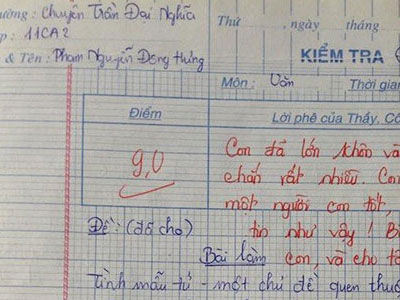 ường: Chuyên Trần Đại Nghĩa
Thứ , ngày tháng
p: 11CA2
KIỂM TRA
& Tên: Phạm Nguyễn Đông Hưng
Môn: Văn Thời gian
Điểm
Lời phê của Thầy, Cô
9,0
Con đã lớn khôn và
chắn rất nhiều. Con
một người con tốt,
tin như vậy! B
Đề: (đã cho)
Bài làm
con, và cha
Tình mẫu tử - một chủ đề quen thuộ